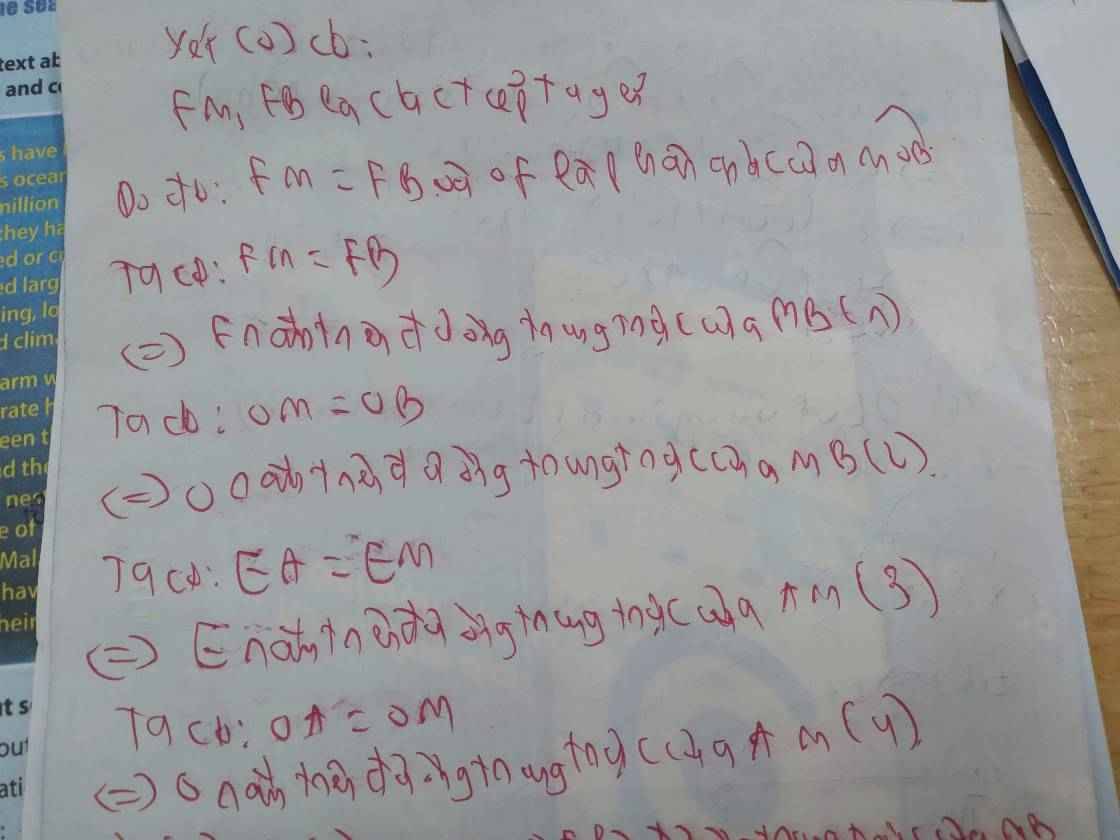 Xét (O) có:
FM, FB là các tiếp tuyến
Do đó: FM = FB và OF là phân giác của góc MOB
Ta có: FM = FB
(=) F nằm trên đường trung trực của MB (1)
Ta có: OM = OB
(=) O nằm trên đường trung trực của MB (2).
Ta có: EA = EM
(=) E nằm trên đường trung trực của AM (3)
Ta có: OA = OM
(=) O nằm trên đường trung trực của AM (4)
text ab
and c
s have
s ocear
million
they ha
ed or c
ed larg
ing, lo
d clim
arm w
rate h
een t
d the
ne
e of
Mal
hav
heir
ut s
out
ati